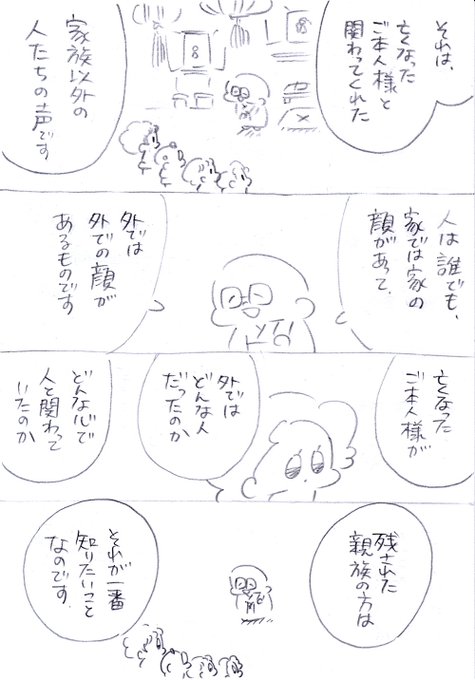 それは、
亡くなった
ご本人様と
関わってくれた
家族以外の
人たちの声です
人は誰でも、
家では家の
顔があって、
外では
外での顔が
あるものです
亡くなった
ご本人様が
外では
どんな人
だったのか
どんな心で
人と関わって
いたのか
残された
親族の方は
それが一番
知りたいこと
なのです。